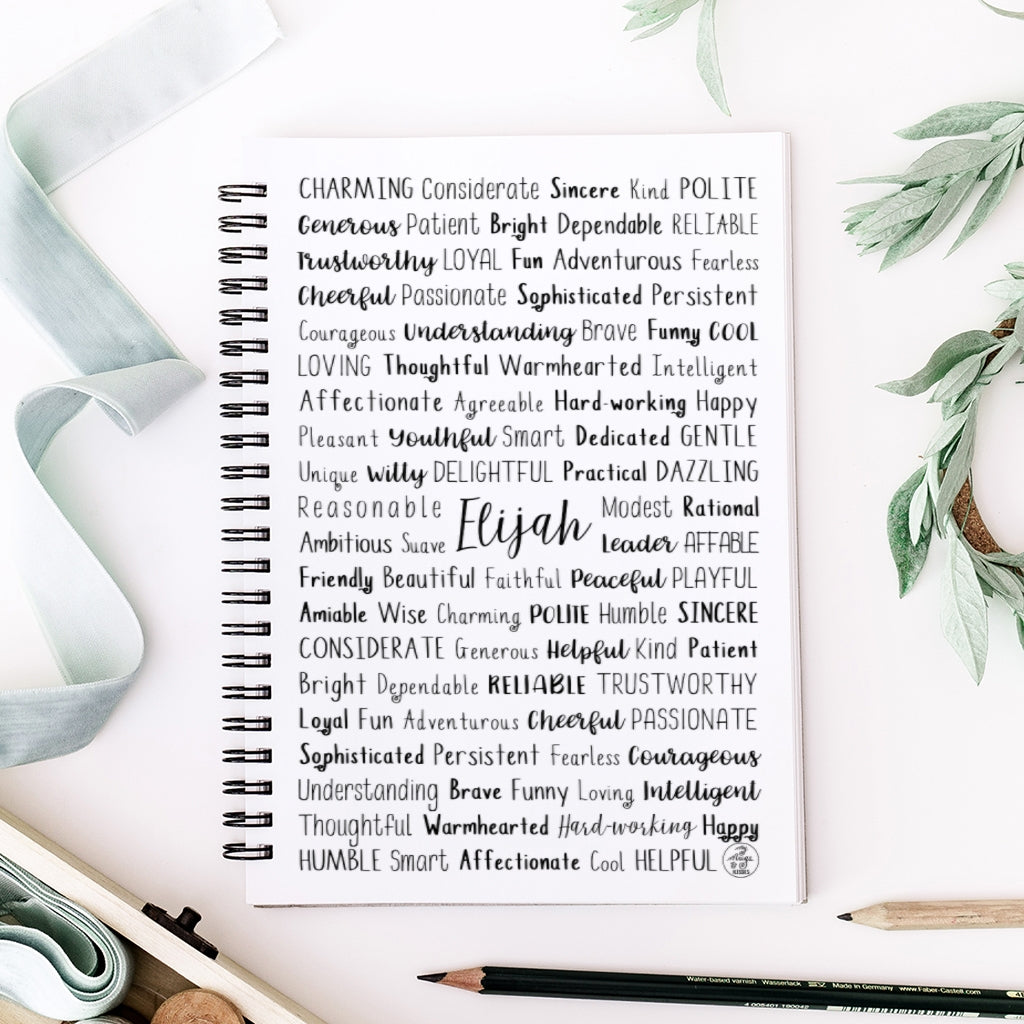 CHARMING Considerate Sincere Kind POLITE
Generous Patient Bright Dependable RELIABLE
Trustworthy LOYAL Fun Adventurous Fearless
Cheerful Passionate Sophisticated Persistent
Courageous Understanding Brave Funny COOL
LOVING Thoughtful Warmhearted Intelligent
Affectionate Agreeable Hard-working Happy
Pleasant Youthful Smart Dedicated GENTLE
Unique Witty DELIGHTFUL Practical DAZZLING
Reasonable Elijah Modest Rational
Ambitious Suave Leader AFFABLE
Friendly Beautiful Faithful Peaceful PLAYFUL
Amiable Wise Charming POLITE Humble SINCERE
CONSIDERATE Generous Helpful Kind Patient
Bright Dependable RELIABLE TRUSTWORTHY
Loyal Fun Adventurous Cheerful PASSIONATE
Sophisticated Persistent Fearless Courageous
Understanding Brave Funny Loving Intelligent
Thoughtful Warmhearted Hard-working Happy
HUMBLE Smart Affectionate Cool HELPFUL
Water-based varnish Wasserlack Made in Germany www.Faber-Castell.com